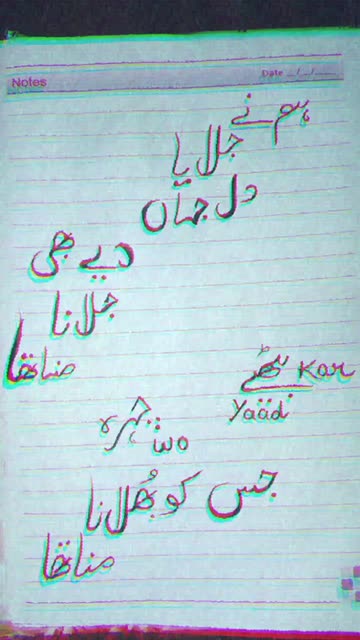 Notes Date __/__/__
ہم نے
جلایا
دل جہاں
دیے جی
جلانا
مناتھا
Kar بٹھے
yaad
wo چہرہ
جس کو بُھلانا
مناتھا